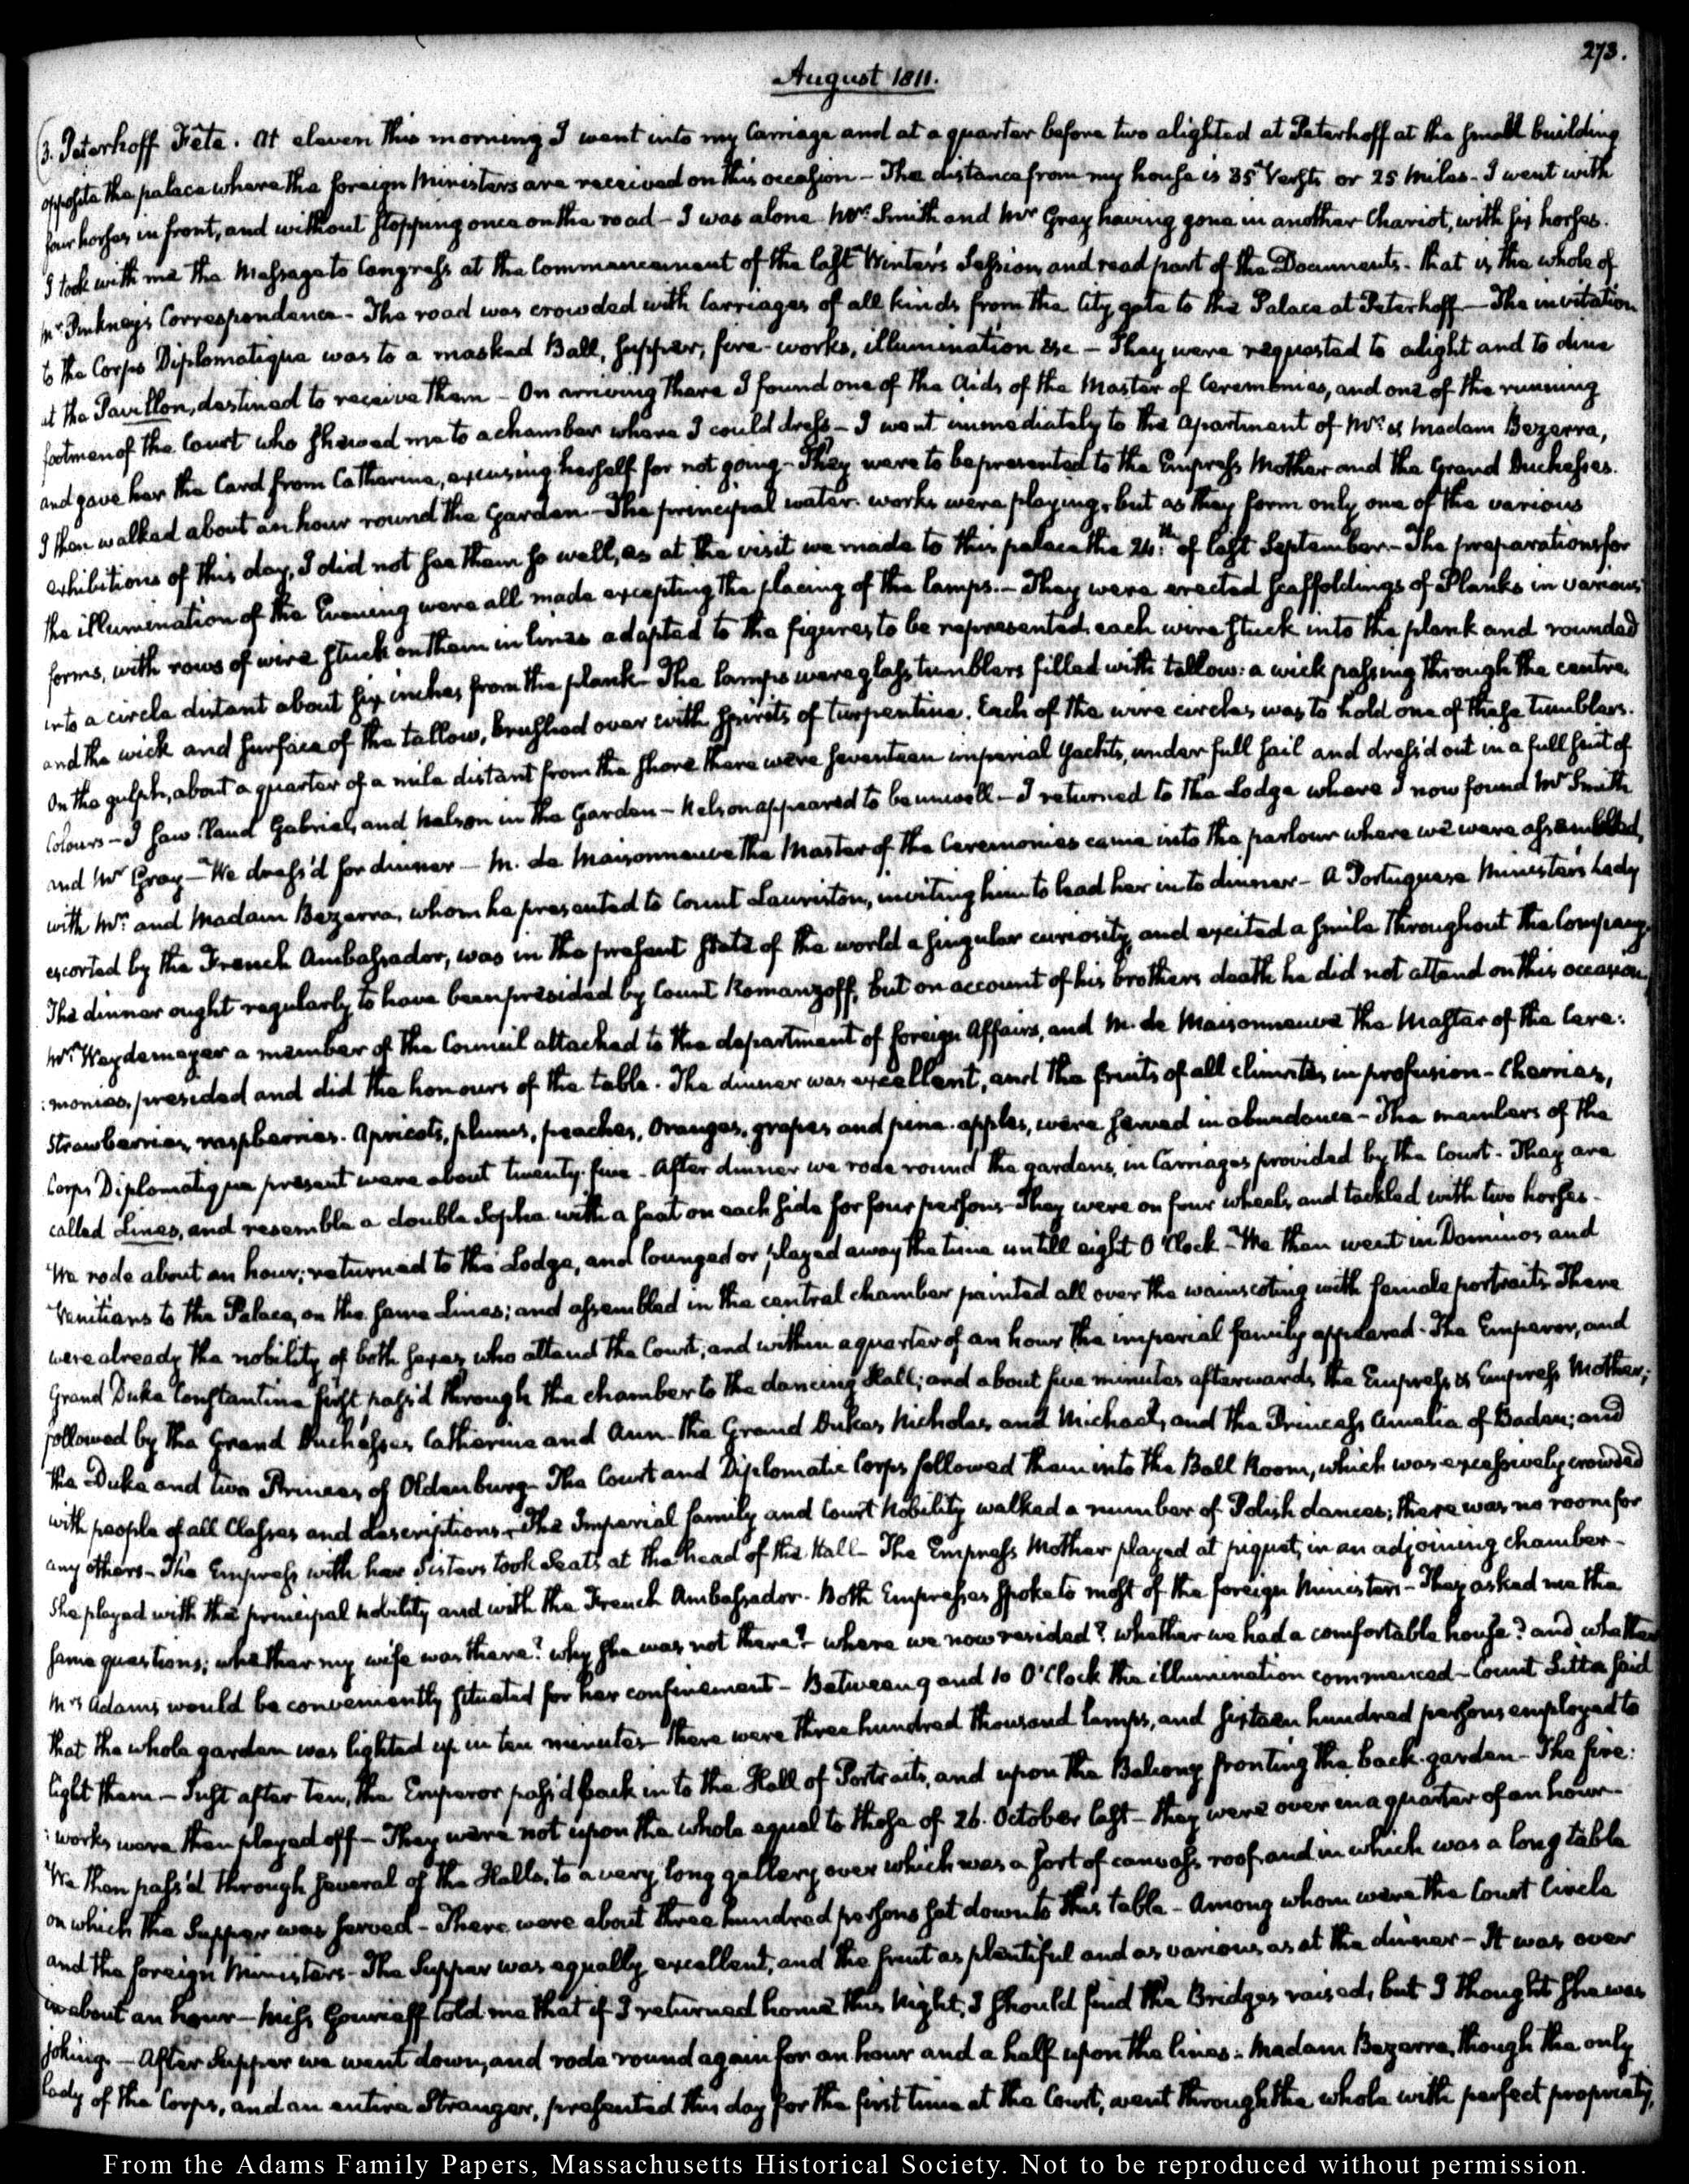 273.
August 1811.
3. Peterhoff Fête. At eleven this morning I went into my Carriage and at a quarter before two alighted at Peterhoff at the small building
opposite the palace where the foreign Ministers are received on this occasion — The distance from my house is 35 Versts or 25 miles — I went with
four horses in front, and without stopping once on the road — I was alone Mr. Smith and Mr Gray having gone in another Chariot, with six horses.
I took with me the Message to Congress at the Commencement of the last Winter's Session, and read part of the Documents. that is, the whole of
Mr. Pinkney's Correspondence — The road was crowded with Carriages of all kinds from the City gate to the Palace at Peterhoff — The invitation
to the Corps Diplomatique was to a masked Ball, supper, fire-works, illumination &c — They were requested to alight and to dine
at the Pavillon, destined to receive them — On arriving there I found one of the Aids of the Master of Ceremonies, and one of the running
footmen of the Court who shewed me to a chamber where I could dress — I went immediately to the apartment of Mr. & Madam Bezerra,
and gave her the Card from Catherine, excusing herself for not going — They were to be presented to the Empress Mother and the Grand Duchesses.
I then walked about an hour round the Garden — The principal water-works were playing, but as they form only one of the various
exhibitions of this day, I did not see them so well, as at the visit we made to this palace the 24th. of last September — The preparations for
the illumination of the Evening were all made excepting the placing of the lamps. — They were erected scaffoldings of Planks in various
forms, with rows of wire stuck on them in lines adapted to the figures to be represented. each wire stuck into the plank and rounded
into a circle distant about six inches from the plank — The lamps were glass tumblers filled with tallow: a wick passing through the centre,
and the wick and surface of the tallow, brushed over with spirits of turpentine. Each of the wire circles was to hold one of these tumblers.
On the gulph, about a quarter of a mile distant from the shore there were seventeen imperial yachts, under full sail and dress'd out in a full suit of
Colours — I saw Claud Gabriel, and Nelson in the Garden — Nelson appeared to be unwell — I returned to the Lodge where I now found Mr Smith
and Mr Gray — We dress'd for dinner — M. de Maisonneuve the Master of the Ceremonies came into the parlour where we were assembled,
with Mr. and Madam Bezerra, whom he presented to Count Lauriston, inviting him to lead her in to dinner — A Portuguese Minister's Lady
escorted by the French Ambassador, was in the present state of the world a singular curiosity, and excited a smile throughout the Company.
The dinner ought regularly to have been presided by Count Romanzoff, but on account of his brothers death he did not attend on this occasion,
Mr. Weydemeyer a member of the Council attached to the department of foreign Affairs, and M. de Maisonneuve the Master of the Cere:
:monies, presided and did the honours of the table. The dinner was excellent, and the fruits of all climates, in profusion — Cherries,
Strawberries, raspberries. Apricots, plums, peaches, Oranges, grapes and pine-apples, were served in abundance — The members of the
Corps Diplomatique present were about twenty-five. After dinner we rode round the gardens, in Carriages provided by the Court — They are
called Lines, and resemble a double Sopha with a seat on each side for four persons — They were on four wheels, and tackled with two horses —
We rode about an hour; returned to the Lodge, and lounged or played away the time untill eight O'Clock — We then went in Dominos and
Venitians to the Palace, on the same Lines; and assembled in the central chamber painted all over the wainscoting with female portraits. There
were already the nobility of both sexes who attend the Court; and within a quarter of an hour the imperial family appeared — The Emperor, and
Grand Duke Constantine first pass'd through the chamber to the dancing Hall; and about five minutes afterwards, the Empress & Empress Mother;
followed by the Grand Duchesses Catherine and Ann. the Grand Dukes Nicholas and Michael, and the Princess Amalia of Baden; and
the Duke and two Princes of Oldenburg — The Court and Diplomatic Corps followed them into the Ball Room, which was excessively crowded
with people of all Classes and descriptions — The Imperial family and Court Nobility walked a number of Polish dances; there was no room for
any others — The Empress with her Sisters took Seats at the head of the Hall — The Empress Mother played at piquet, in an adjoining chamber —
She played with the principal nobility and with the French Ambassador. Both Empresses spoke to most of the foreign Ministers — They asked me the
same questions; whether my wife was there? why she was not there? where we now resided? whether we had a comfortable house? and whether
Mrs Adams would be conveniently situated for her confinement — Between 9 and 10 O'Clock the illumination commenced — Count Litta said
that the whole garden was lighted up in ten minutes — there were three hundred thousand lamps, and sixteen hundred persons employed to
light them — Just after ten, the Emperor pass'd back in to the Hall of Portraits, and upon the Balcony fronting the back-garden — The fire:
:works were then played off — They were not upon the whole equal to those of 26. October last — they were over in a quarter of an hour —
We then pass'd through several of the Halls, to a very long gallery over which was a sort of canvass roof, and in which was a long table
on which the Supper was served — There were about three hundred persons sat down to this table — Among whom were the Court Circle
and the foreign Ministers — The Supper was equally excellent, and the fruit as plentiful and as various, as at the dinner — It was over
in about an hour — Miss Gourieff told me that if I returned home this Night, I should find the Bridges raised, but I thought she was
joking. — After Supper we went down, and rode round again for an hour and a half upon the lines. Madam Bezerra, though the only
lady of the Corps, and an entire Stranger, presented this day for the first time at the Court, went through the whole with perfect propriety,
From the Adams Family Papers, Massachusetts Historical Society. Not to be reproduced without permission.